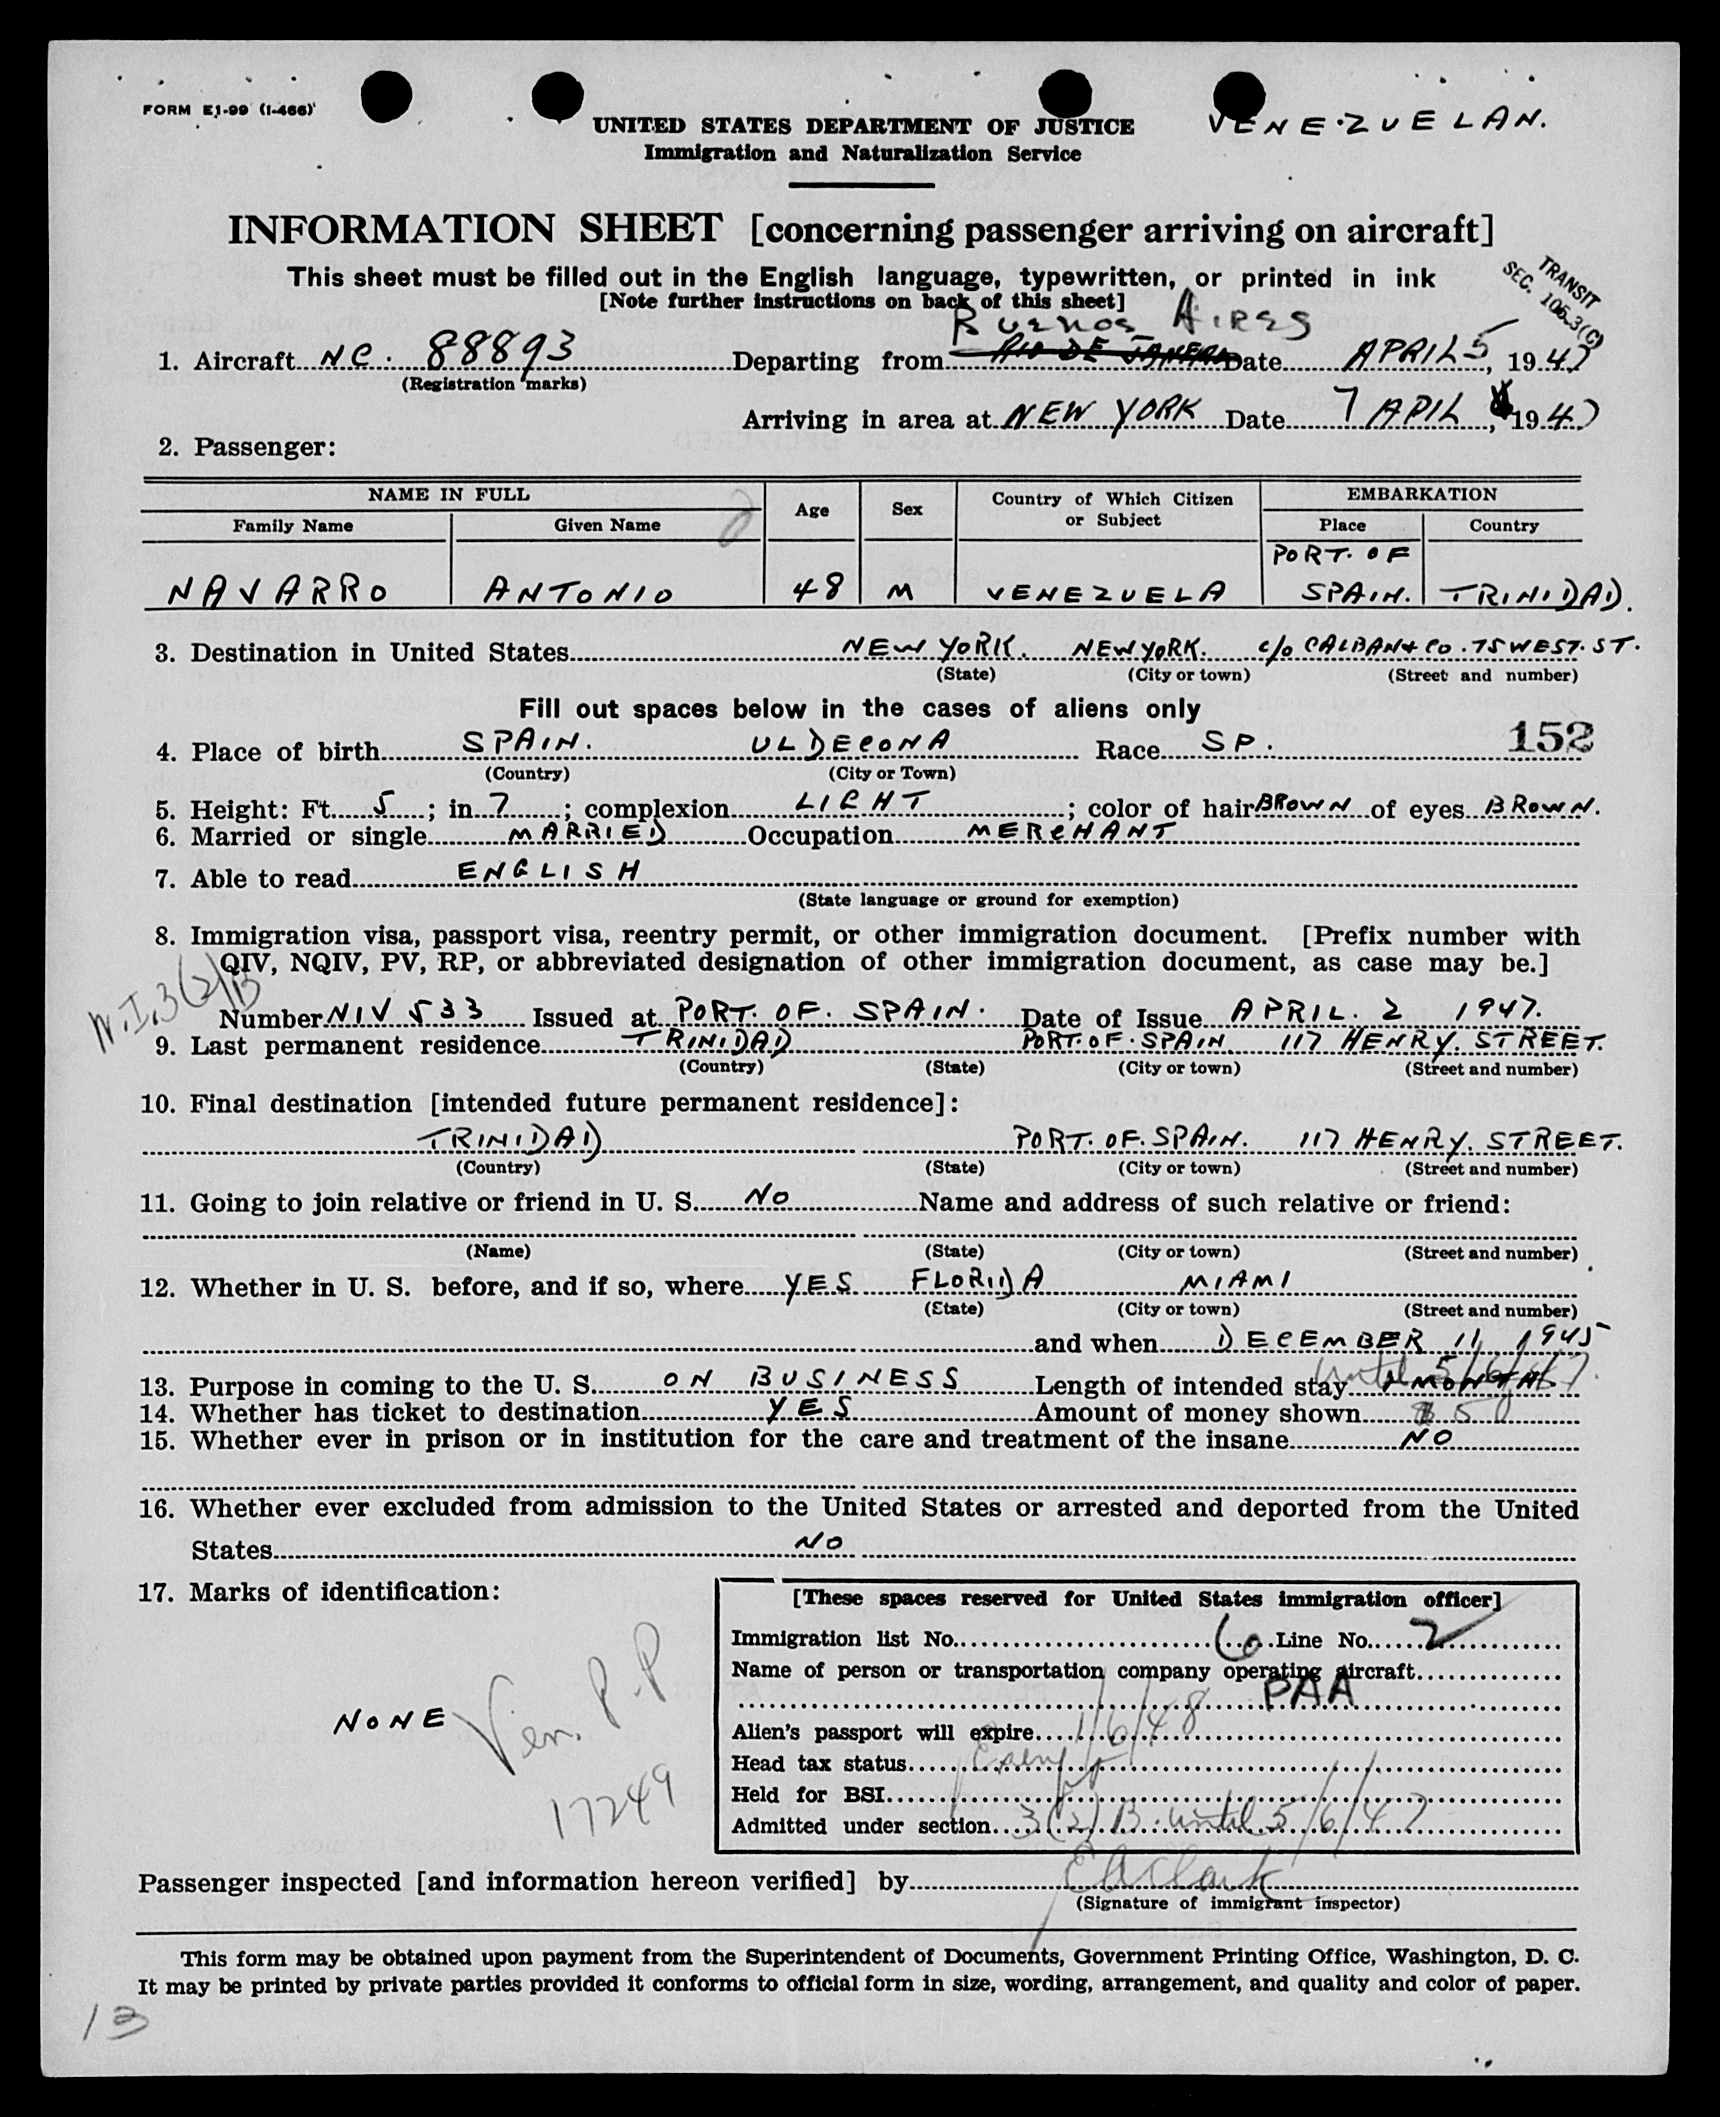 FORM E1-99 (I-466)
VENEZUELAN.
UNITED STATES DEPARTMENT OF JUSTICE
Immigration and Naturalization Service
INFORMATION SHEET [concerning passenger arriving on aircraft]
This sheet must be filled out in the English language, typewritten, or printed in ink
[Note further instructions on back of this sheet]
TRANSIT
SEC. 106.3(C)
Buenos Aires
1. Aircraft NC. 88893 Departing from RIO DE JANERO Date APRIL 5, 1947
(Registration marks)
Arriving in area at NEW YORK Date 7 APIL, 1947
2. Passenger:
NAME IN FULL Age Sex Country of Which Citizen or Subject EMBARKATION
Family Name Given Name Place Country
NAVARRO ANTONIO 48 M VENEZUELA PORT. OF SPAIN. TRINIDAD.
3. Destination in United States NEW YORK. NEW YORK. c/o CALBAN & CO. 75 WEST. ST.
(State) (City or town) (Street and number)
Fill out spaces below in the cases of aliens only
152
4. Place of birth SPAIN. ULDECONA Race SP.
(Country) (City or Town)
5. Height: Ft. 5; in. 7; complexion LIGHT; color of hair BROWN of eyes BROWN.
6. Married or single MARRIED Occupation MERCHANT
7. Able to read ENGLISH
(State language or ground for exemption)
8. Immigration visa, passport visa, reentry permit, or other immigration document. [Prefix number with
QIV, NQIV, PV, RP, or abbreviated designation of other immigration document, as case may be.]
N.I.3(2)B
Number NIV 533 Issued at PORT. OF. SPAIN. Date of Issue APRIL. 2 1947.
9. Last permanent residence TRINIDAD PORT. OF. SPAIN 117 HENRY. STREET.
(Country) (State) (City or town) (Street and number)
10. Final destination [intended future permanent residence]:
TRINIDAD PORT. OF. SPAIN. 117 HENRY. STREET.
(Country) (State) (City or town) (Street and number)
11. Going to join relative or friend in U. S. NO Name and address of such relative or friend:
(Name) (State) (City or town) (Street and number)
12. Whether in U. S. before, and if so, where YES FLORIDA MIAMI
(State) (City or town) (Street and number)
and when DECEMBER 11, 1945
until 5/6/47.
13. Purpose in coming to the U. S. ON BUSINESS Length of intended stay 1 MONTH
14. Whether has ticket to destination YES Amount of money shown $50
15. Whether ever in prison or in institution for the care and treatment of the insane NO
16. Whether ever excluded from admission to the United States or arrested and deported from the United
States NO
17. Marks of identification:
NONE
Ven. P.P
17249
[These spaces reserved for United States immigration officer]
Immigration list No. 6 Line No. 2
Name of person or transportation company operating aircraft
PAA
Alien's passport will expire 1/6/48
Head tax status Exempt
Held for BSI
Admitted under section 3(2) B. until 5/6/47
Passenger inspected [and information hereon verified] by EAClark
(Signature of immigrant inspector)
This form may be obtained upon payment from the Superintendent of Documents, Government Printing Office, Washington, D. C.
It may be printed by private parties provided it conforms to official form in size, wording, arrangement, and quality and color of paper.
13